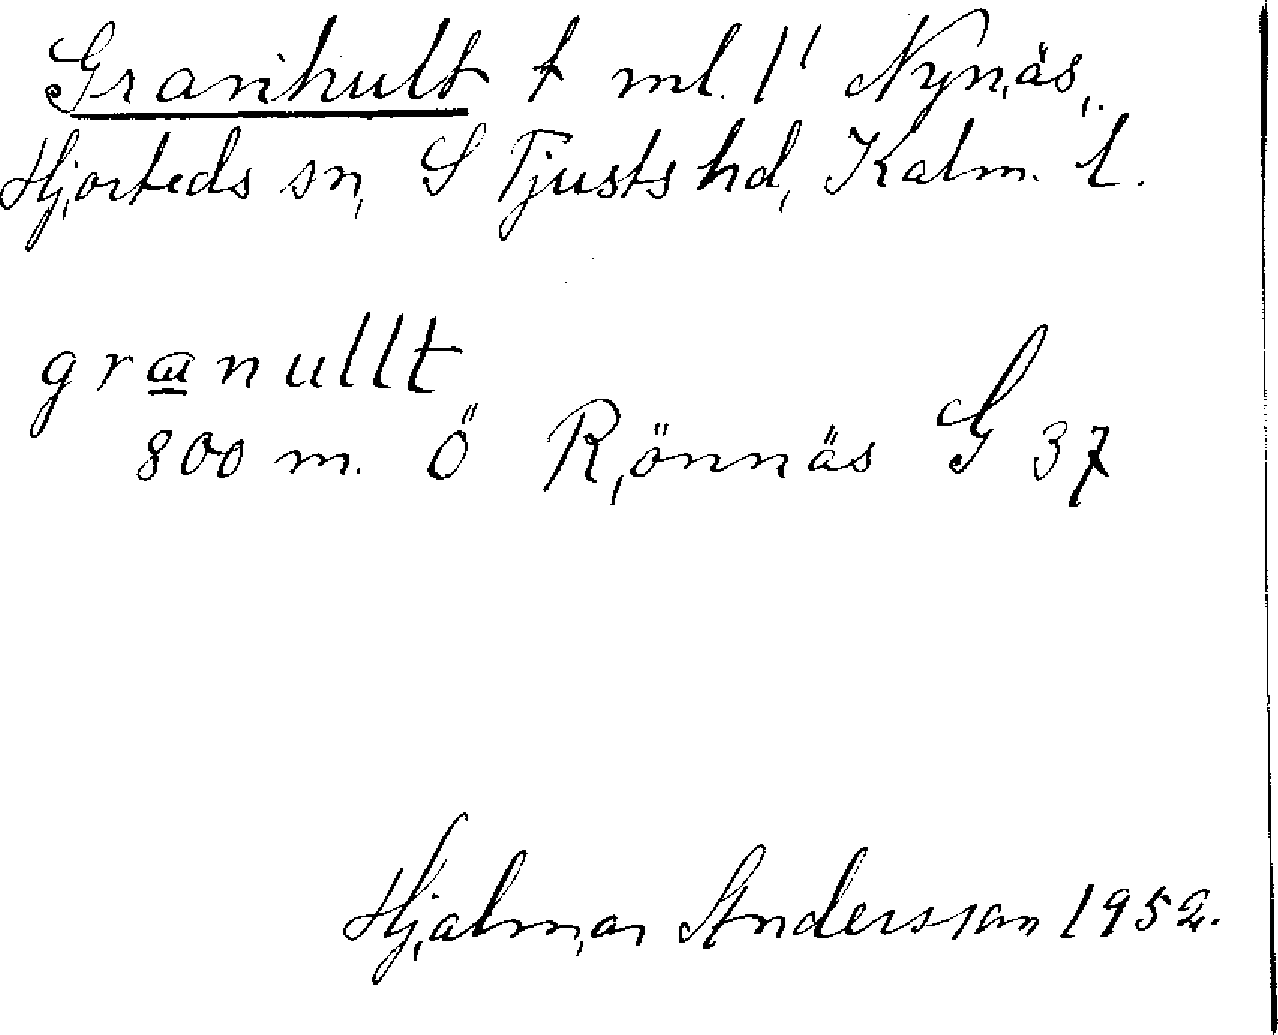 Granhult t ml. 1' Nynäs,
Hjorteds sn, S Tjusts hd, Kalm. l.
granullt
800 m. Ö Rönnäs G 37
Hjalmar Andersson 1952.